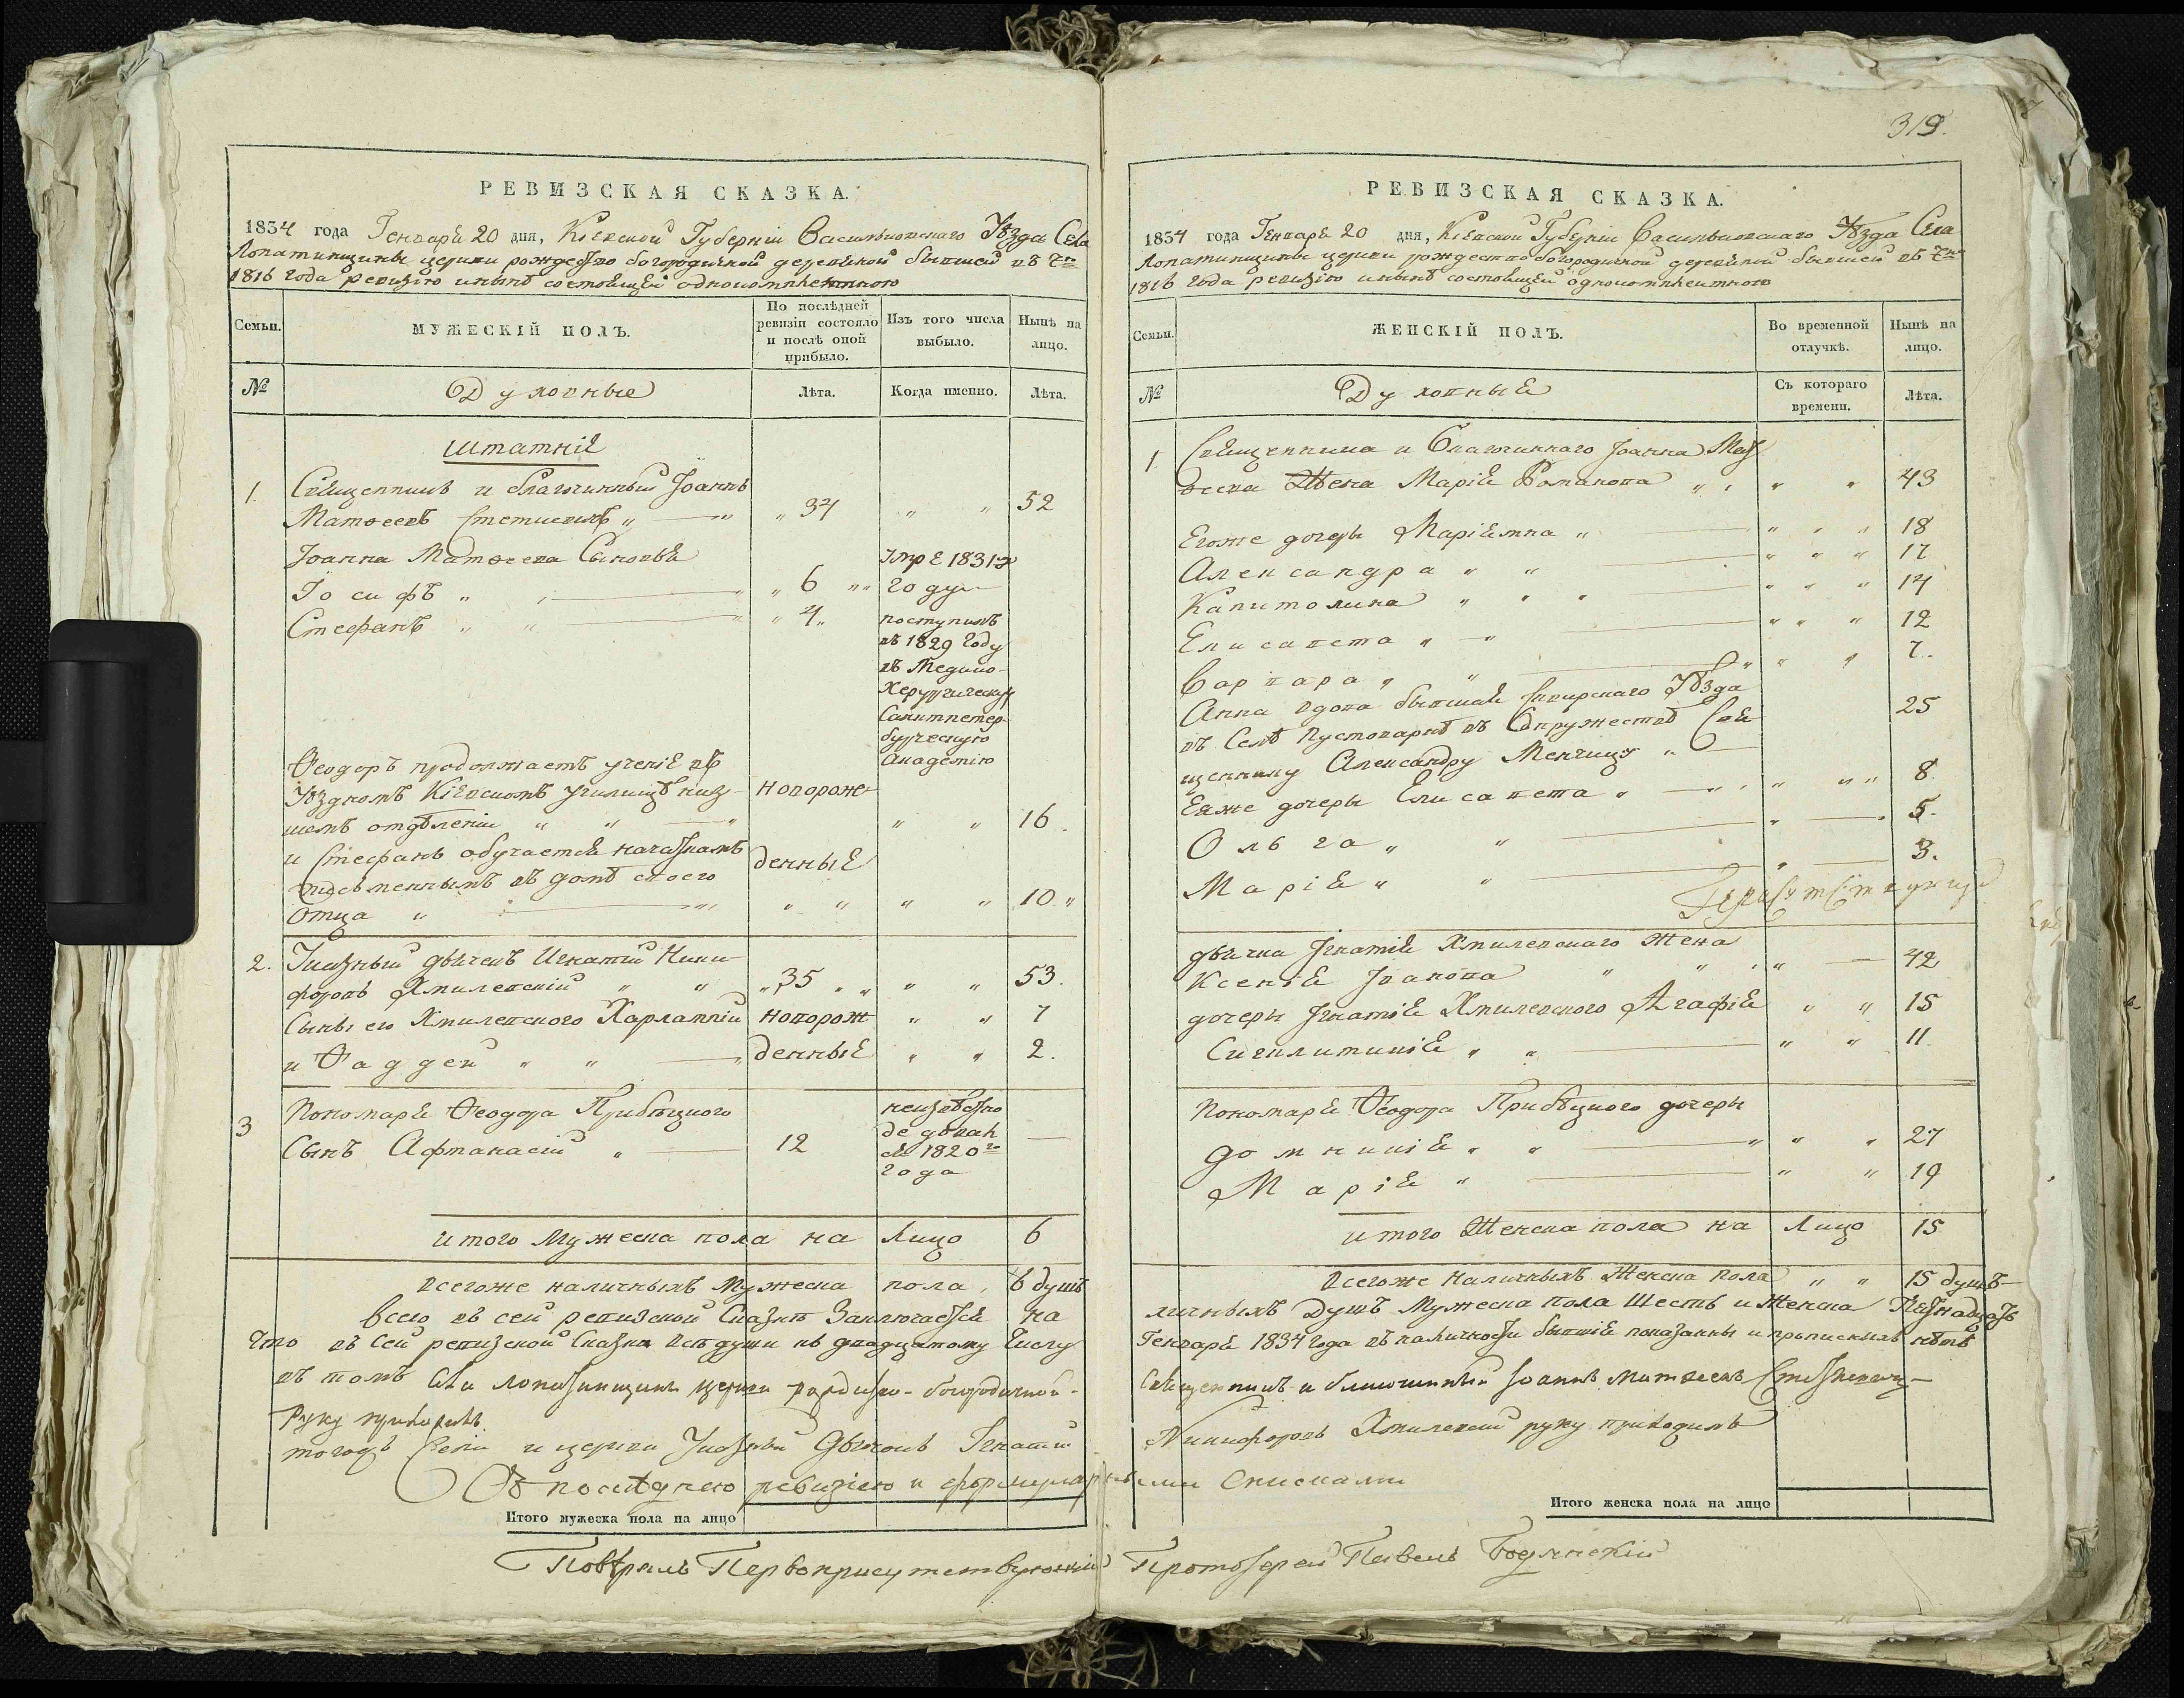 319.
РЕВИЗСКАЯ СКАЗКА.
1834 года Генваря 20 дня, Кіевской Губерніи Васильковскаго Уѣзда Села
Лопатинщины церкви рождество богородичной деревяной бывшей въ 7ю
1816 года ревизію и нынѣ состоящей однокомплектною
Семьи.
МУЖЕСКІЙ ПОЛЪ.
По послѣдней ревизіи состояло и послѣ оной прибыло.
Изъ того числа выбыло.
Нынѣ на лицо.
№
Духовные
Лѣта.
Когда именно.
Лѣта.
Штатніе
1. Священникъ и благочинный Іоаннъ
Матѳеевъ " 34 " " 52
Іоанна Матѳеева Сыновья
Іосифъ " " 6 " " умре 1831го году
Стефанъ " " " 4 " поступилъ
въ 1829 году
въ Медико-
Херургическую
Санктпетер-
бургскую
Академію
Ѳеодоръ продолжаетъ ученіе въ
Уѣздномъ Кіевскомъ училищѣ низ- новорож-
шемъ отдѣленіи " " " " 16.
и Стефанъ обучается началамъ денные
письменнымъ въ домѣ своего
Отца " " " " " 10 "
2. Указный дьячекъ Игнатій Ники-
форовъ Хмилевскій " " " 35 " " " " 53.
Сыны его Хмилевского Харлампій новорож " " 7
и Фаддей " " денные " " 2.
3 Пономаря Ѳеодора Прибѣцкого неизвѣстно
Сынъ Афтанасій " 12 где дѣвал
ся 1820го
года —
итого Мужеска пола на Лицо 6
Всегоже наличныхъ Мужеска пола, 6 душъ
Всего въ сей ревизской Сказкѣ Заключается на
Что въ сей ревизской Сказки всѣ души къ двадцатому Числу
въ томъ села лопатинщины церкви рождество-богородичной-
руку приложилъ
тогожъ села и церкви Указный Дьячокъ Игнатій
Съ послѣднею ревизіею и формулярными Списками
Итого мужеска пола на лицо
Повѣрялъ Первоприсутствующій Протоіерей Павелъ Бодянскій
РЕВИЗСКАЯ СКАЗКА.
1834 года Генваря 20 дня, Кіевской Губерніи Васильковскаго Уѣзда Села
Лопатинщины церкви рождество богородичной деревяной бывшей въ 7ю
1816 года ревизію и нынѣ состоящей однокомплектною
Семьи.
ЖЕНСКІЙ ПОЛЪ.
Во временной отлучкѣ.
Нынѣ на лицо.
№
Духовные
Съ котораго времени.
Лѣта.
1. Священника и Благочиннаго Іоанна Мат
ѳеева Жена Марія Романова " " " " 43
Егоже дочеры Маріямна " " " " 18
Александра " " " " " 17
Капитолина " " " " " " 14
Елисавета " " " " " 12
Варвара " " " " " 7.
Анна вдова бывшая Сквирскаго Уѣзда
въ Селѣ Пустоваркѣ въ Супружествѣ Свя 25
щеннику Александру Менчицу "
Еяже дочеры Елисавета " " " " " " 8.
Ольга " " " " 5.
Марія " " " 3.
дьячка Игнатія Хмилевскаго Жена
Ксенія Іванова " " " " 42
дочеры Игнатія Хмилевского Агафія " " 15
Сигклитикія " " " " 11
Пономаря Ѳеодора Прибѣцкого дочеры
Домникія " " " " " 27
Марія " " " 19
итого Женска пола на Лицо 15
Всегоже Наличныхъ Женска пола " " 15 душъ
личныхъ Душъ Мужеска пола Шесть и Женска Пятнадцать
Генваря 1834 года въ наличности бывшіе показанны и прописныхъ нѣтъ
Священникъ и благочинный Іоаннъ Матѳеевъ
Никифоровъ Хмилевскій руку приложилъ
Итого женска пола на лицо